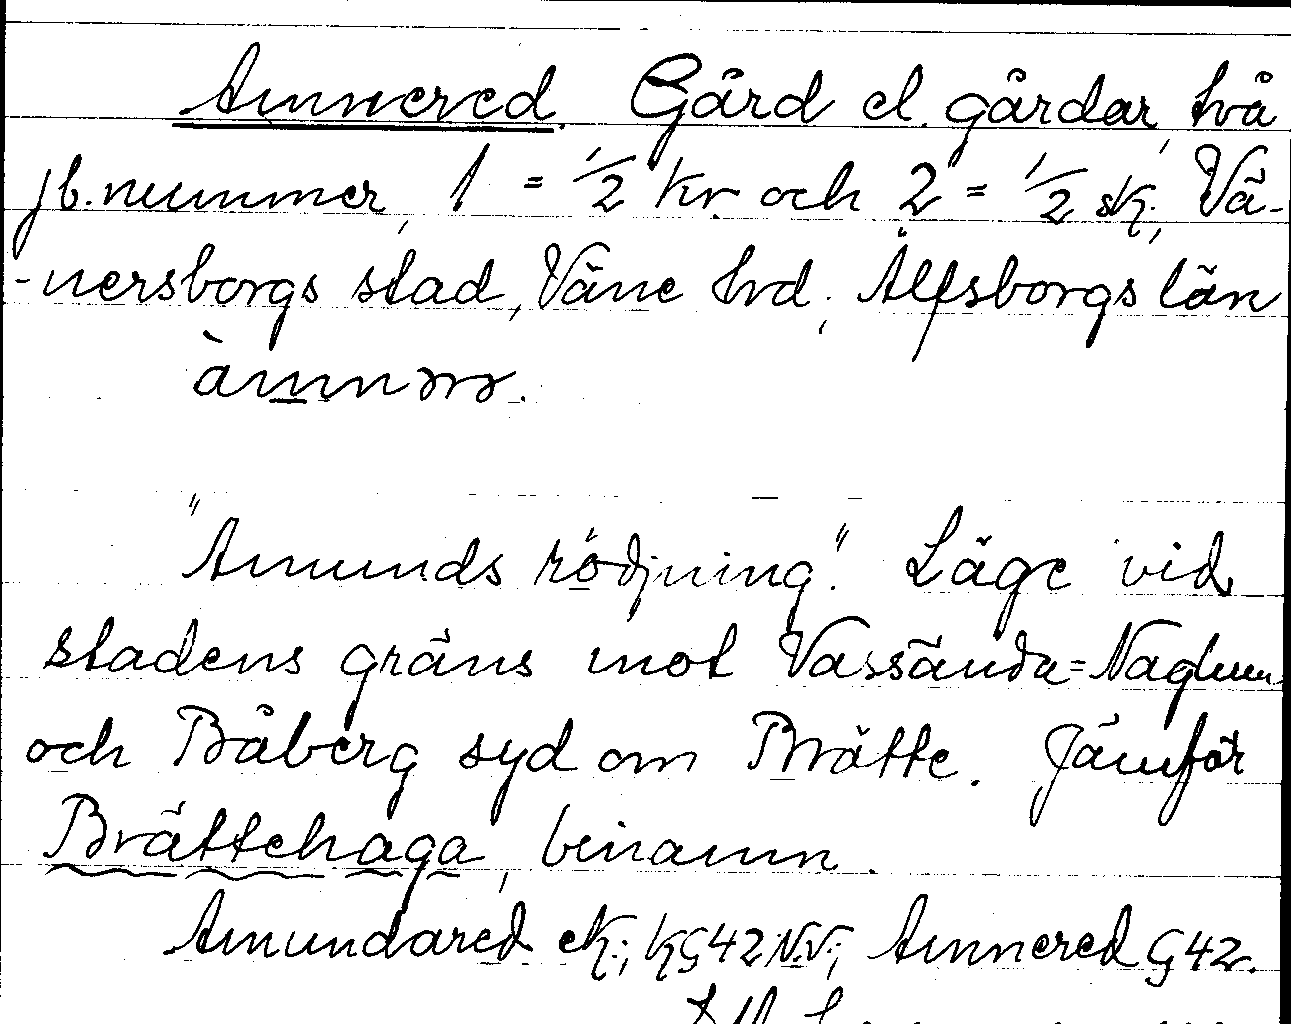 Amnered. Gård el. gårdar, två
jb. nummer, 1 = 1/2 kr och 2 = 1/2 sk., Vä-
-nersborgs stad, Väne hrd, Älfsborgs län
"Amunds rödjning." Läge vid
stadens gräns mot Vassända=Naglum
och Båberg syd om Brätte. Jämför
Brättehaga, binamn.
Amundared ek.; kg42 N.V.; Amnered G42.